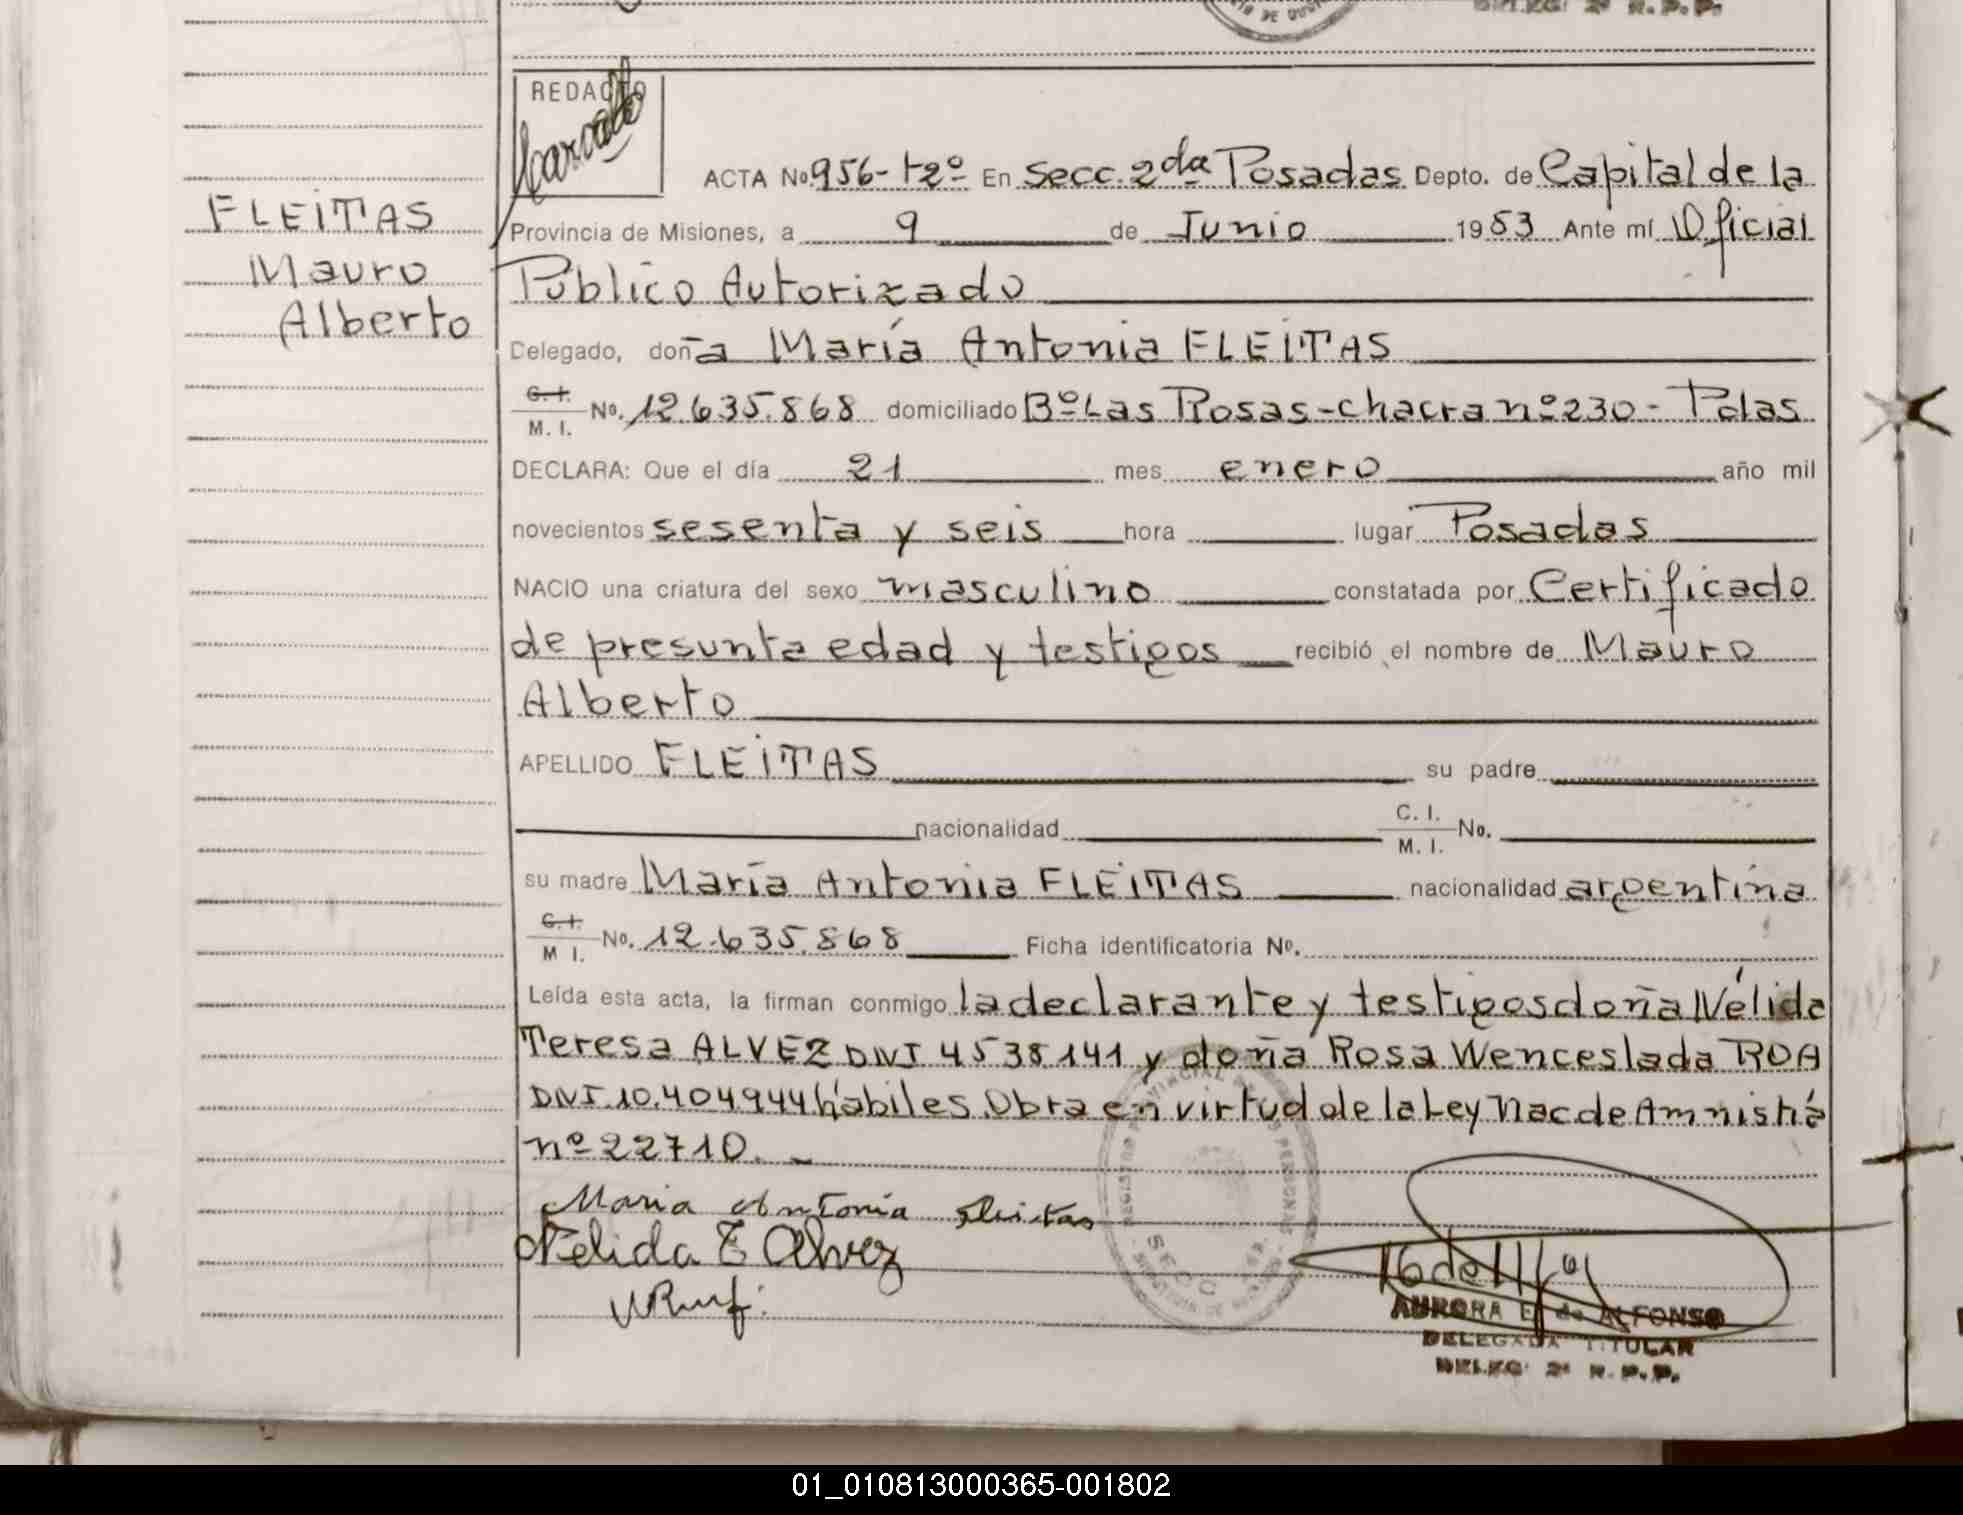 DELEG. 2ª R.P.P.
REDACTO
FLEITAS
Mauro
Alberto
ACTA No. 956-t2º En Secc. 2da Posadas Depto. de Capital de la
Provincia de Misiones, a 9 de Junio 1983 Ante mí Oficial
Público Autorizado
Delegado, doña María Antonia FLEITAS
C. I. / M. I. No. 12.635.868 domiciliado Bº Las Rosas-chacra nº 230 - Pdas
DECLARA: Que el día 21 mes enero año mil
novecientos sesenta y seis hora lugar Posadas
NACIO una criatura del sexo masculino constatada por Certificado
de presunta edad y testigos recibió el nombre de Mauro
Alberto
APELLIDO FLEITAS su padre
nacionalidad C. I. / M. I. No.
su madre María Antonia FLEITAS nacionalidad argentina
C. I. / M I. No. 12.635.868 Ficha identificatoria No.
Leída esta acta, la firman conmigo la declarante y testigos doña Nélida
Teresa ALVEZ DNI 4538141 y doña Rosa Wenceslada ROA
DNI. 10.404944 hábiles. Obra en virtud de la Ley Nac de Amnistía
nº 22710.
Maria Antonia Fleitas
Nelida T Alvez
AURORA E. de ALFONSO
DELEGADA TITULAR
DELEG. 2ª R.P.P.
01_010813000365-001802